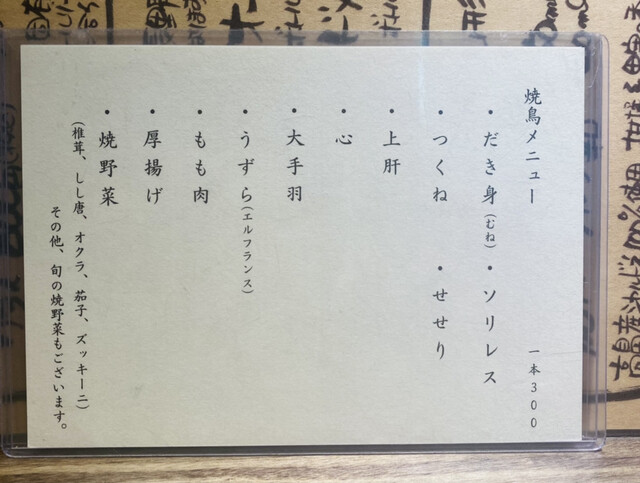 焼鳥メニュー 一本300
・だき身(むね) ・ソリレス
・つくね ・せせり
・上肝
・心
・大手羽
・うずら(エルフランス)
・もも肉
・厚揚げ
・焼野菜
(椎茸、しし唐、オクラ、茄子、ズッキーニ)
その他、旬の焼野菜もございます。